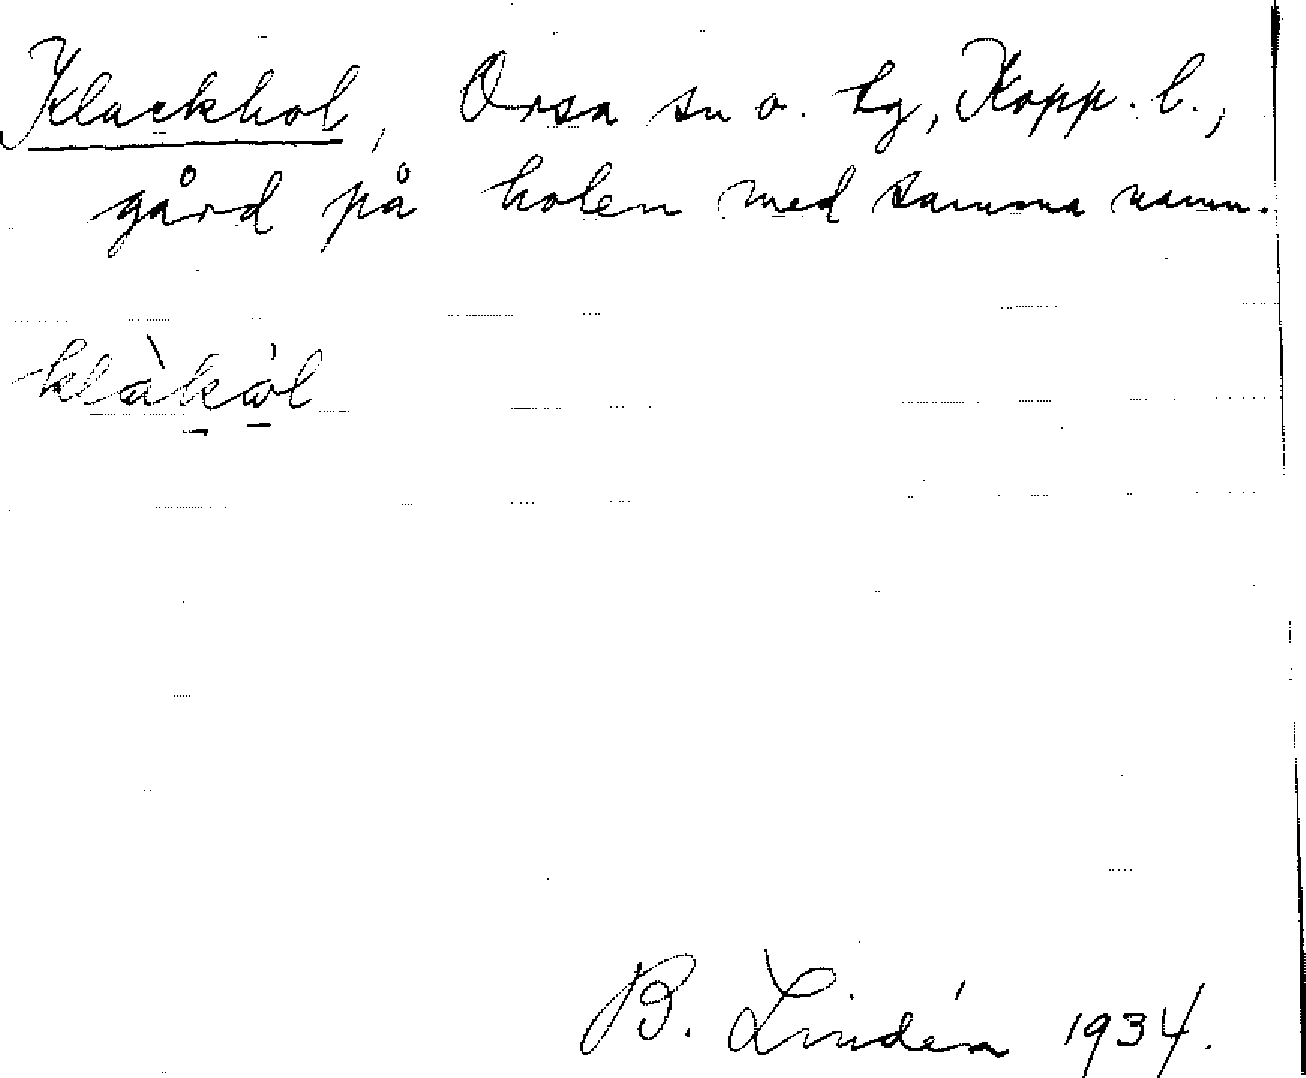 Klackhol, Orsa sn o. tg, Kopp. l.,
gård på holen med samma namn.
klàkål
B. Lindén 1934.